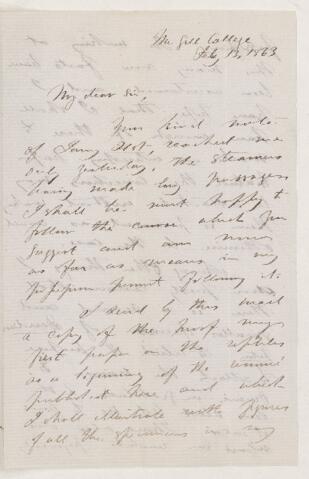 McGill College
Feby 13, 1863
My dear Sir,
Your kind note
of Jany 20th, reached me
only yesterday, the steamers
having made long passages
I shall be most happy to
follow the course which you
suggest and am now
as far as means in my
possession permit following it.
I send by this mail
a copy of the proof of my
first paper on the reptiles
as a beginning of the
published here and which
I shall illustrate with figures
of all the specimens in my